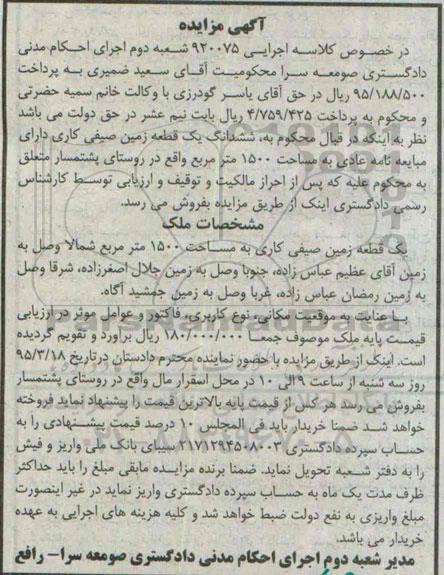 آگهی مزایده
در خصوص کلاسه اجرایی ۹۲۰۰۷۵ شعبه دوم اجرای احکام مدنی
دادگستری صومعه سرا محکومیت آقای سعید ضمیری به پرداخت
۹۵/۱۸۸/۵۰۰ ریال در حق آقای یاسر گودرزی با وکالت خانم سمیه حضرتی
و محکوم به پرداخت ۴/۷۵۹/۴۲۵ ریال بابت نیم عشر در حق دولت می باشد
نظر به اینکه در قبال محکوم به، ششدانگ یک قطعه زمین صیفی کاری دارای
مبایعه نامه عادی به مساحت ۱۵۰۰ متر مربع واقع در روستای پشتمسار متعلق
به محکوم علیه که پس از احراز مالکیت و توقیف و ارزیابی توسط کارشناس
رسمی دادگستری اینک از طریق مزایده بفروش می رسد.
مشخصات ملک
یک قطعه زمین صیفی کاری به مساحت ۱۵۰۰ متر مربع شمالا وصل به
زمین آقای عظیم عباس زاده، جنوبا وصل به زمین جلال اصغرزاده، شرقا وصل
به زمین رمضان عباس زاده، غربا وصل به زمین جمشید آگاه.
با عنایت به موقعیت مکانی، نوع کاربری، فاکتور و عوامل موثر در ارزیابی
قیمت پایه ملک موصوف جمعا ۱۸۰/۰۰۰/۰۰۰ ریال براورد و تقویم گردیده
است. اینک از طریق مزایده با حضور نماینده محترم دادستان درتاریخ ۹۵/۳/۱۸
روز سه شنبه از ساعت ۹ الی ۱۰ در محل استقرار مال واقع در روستای پشتمسار
بفروش می رسد هر کس از قیمت پایه بالاترین قیمت را پیشنهاد نماید فروخته
خواهد شد ضمنا خریدار باید فی المجلس ۱۰ درصد قیمت پیشنهادی را به
حساب سپرده دادگستری ۲۱۷۱۲۹۴۵۰۸۰۰۳ سیبای بانک ملی واریز و فیش
را به دفتر شعبه تحویل نماید. ضمنا برنده مزایده مابقی مبلغ را باید حداکثر
ظرف مدت یک ماه به حساب سپرده دادگستری واریز نماید در غیر اینصورت
مبلغ واریزی به نفع دولت ضبط خواهد شد و کلیه هزینه های اجرایی به عهده
خریدار می باشد.
مدیر شعبه دوم اجرای احکام مدنی دادگستری صومعه سرا– رافع
ParsNamadData